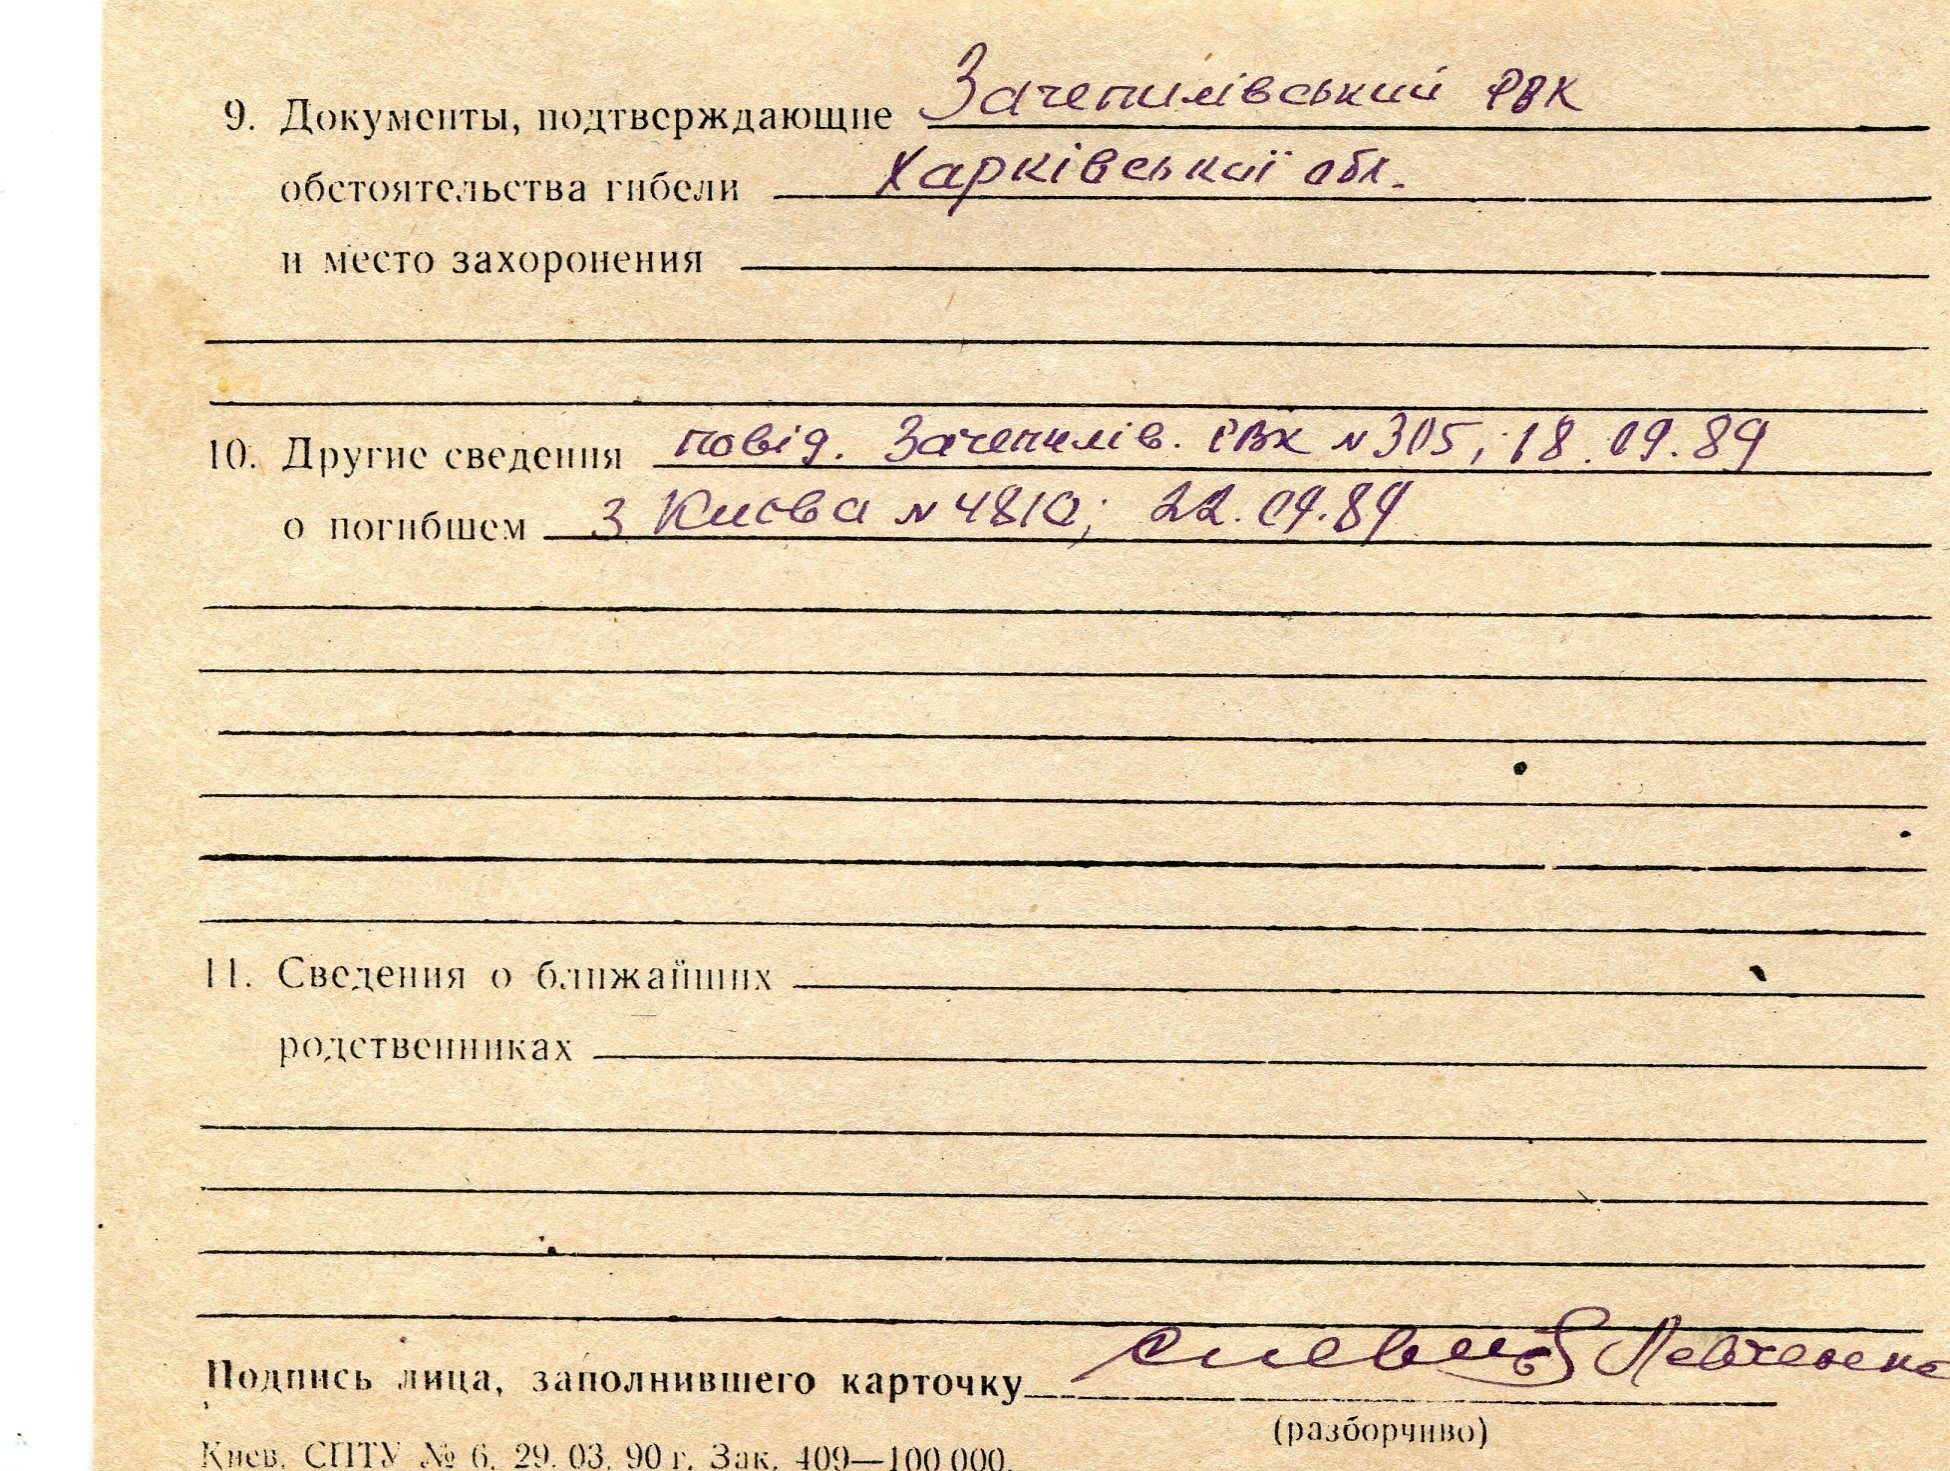 9. Документы, подтверждающие Зачепилівський РВК
обстоятельства гибели Харківської обл.
и место захоронения
10. Другие сведения повід. Зачепилів. РВК №305, 18.09.89
о погибшем з Києва №4810; 22.09.89
11. Сведения о ближайших
родственниках
Подпись лица, заполнившего карточку Левченко
(разборчиво)
Киев. СПТУ № 6. 29. 03. 90 г. Зак. 409—100 000.